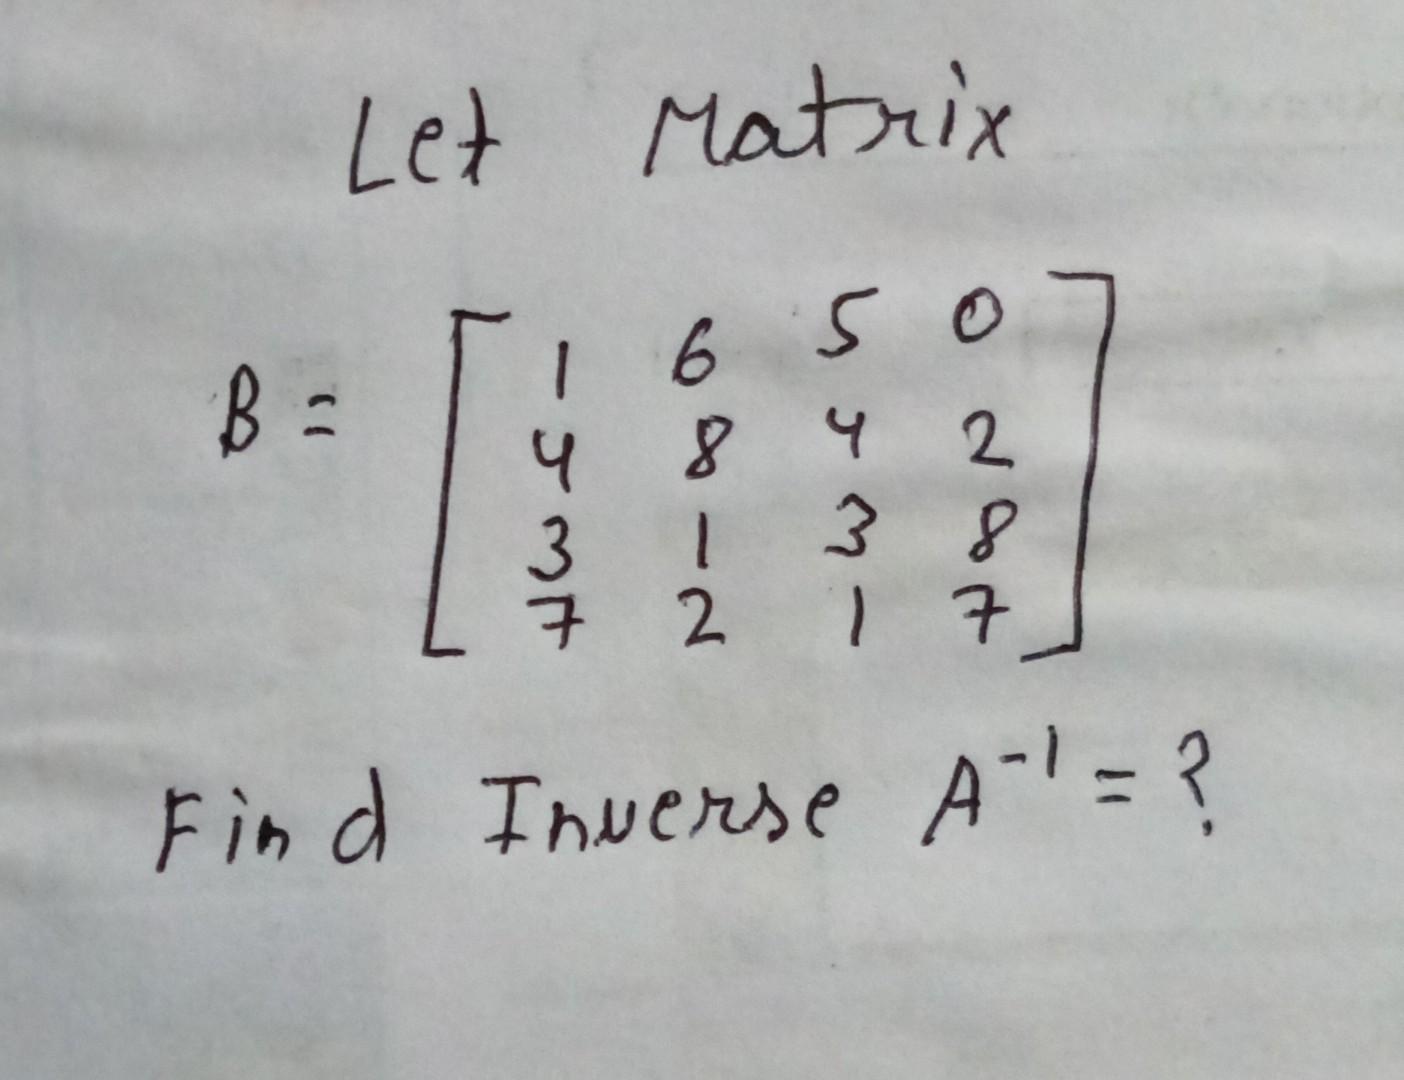 Let Matrix
B = [ 1 6 5 0
4 8 4 2
3 1 3 8
7 2 1 7 ]
Find Inverse A⁻¹ = ?